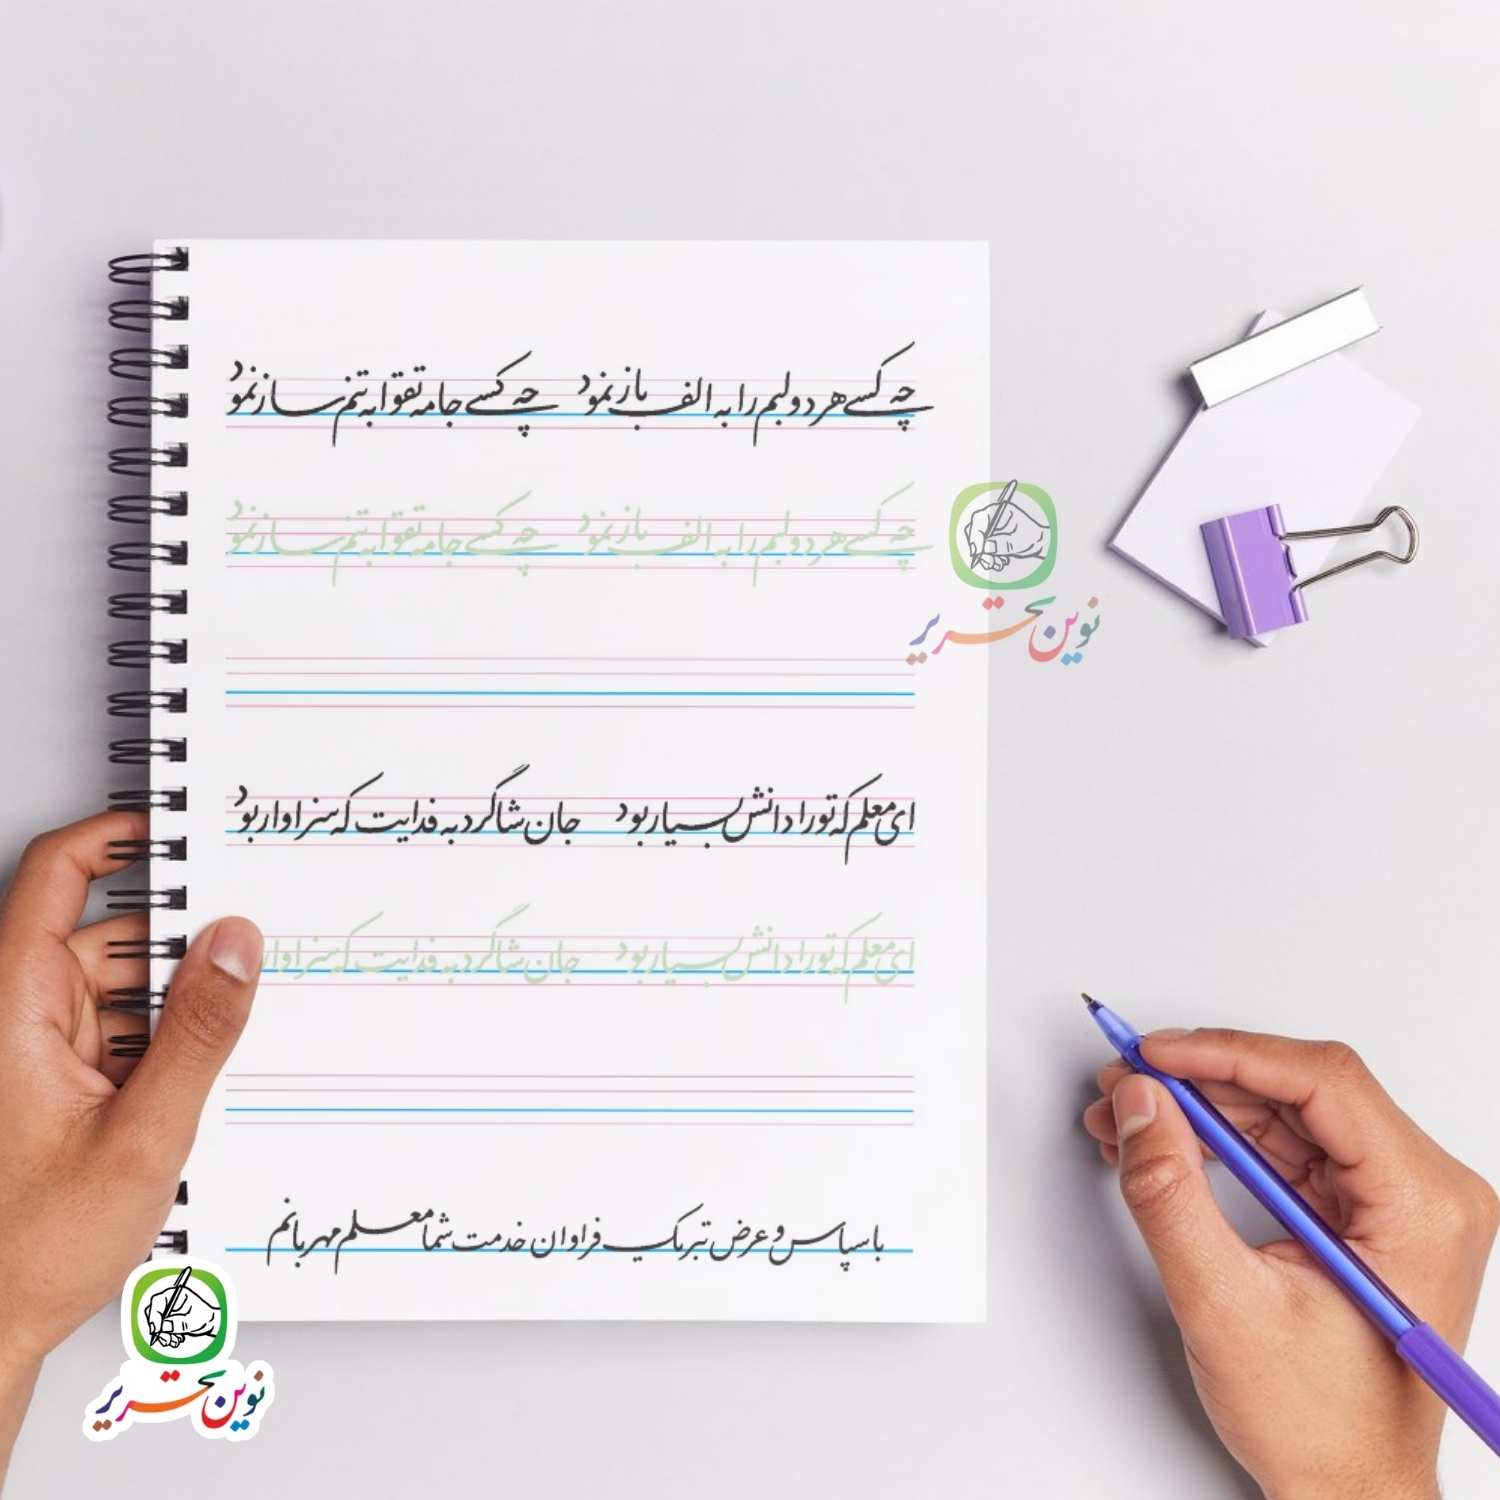 چه کسی هر دو لبم را به الف باز نمود چه کسی جامه تقوا به تنم ساز نمود
چه کسی هر دو لبم را به الف باز نمود چه کسی جامه تقوا به تنم ساز نمود
نوین تحریر
ای معلم که تو را دانش بسیار بود جان شاگرد به فدایت که سزاوار بود
ای معلم که تو را دانش بسیار بود جان شاگرد به فدایت که سزاوار
با سپاس و عرض تبریک فراوان خدمت شما معلم مهربانم
نوین تحریر